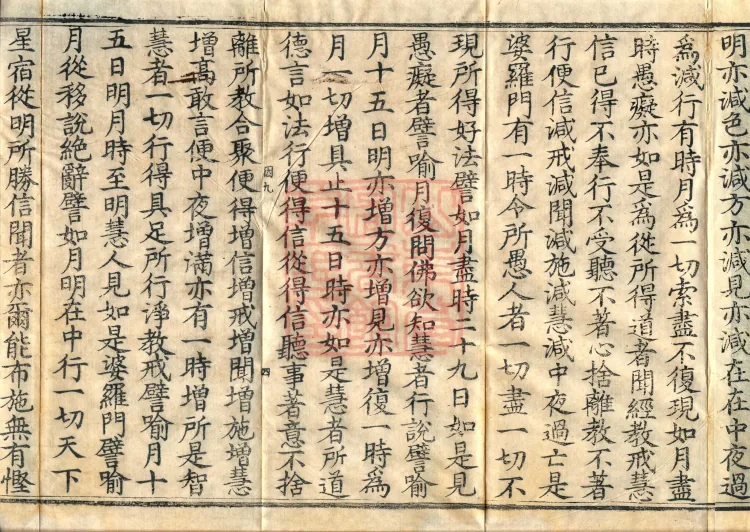 明亦減色亦減方亦減見亦減在在中夜過
為減行有時月為一切索盡不復現如月盡
時愚癡亦如是為從所得道者聞經教戒慧
信已得不奉行不受聽不著心捨離教不著
行便信減戒減聞減施減慧減中夜過亡是
婆羅門有一時令所愚人者一切盡一切不
現所得好法譬如月盡時二十九日如是見
愚癡者譬喻月復開佛欲知慧者行說譬喻
月十五日明亦增方亦增見亦增復一時為
月一切增具止十五日時亦如是慧者所道
德言如法行便得信從得信聽事著意不捨
因九 四
離所教合聚便得增信增戒增聞增施增慧
增高敢言便中夜增滿亦有一時增所是智
慧者一切行得具足所行淨教戒譬喻月十
五日明月時至明慧人見如是婆羅門譬喻
月從移說絕辭譬如月明在中行一切天下
星宿從明所勝信聞者亦爾能布施無有慳